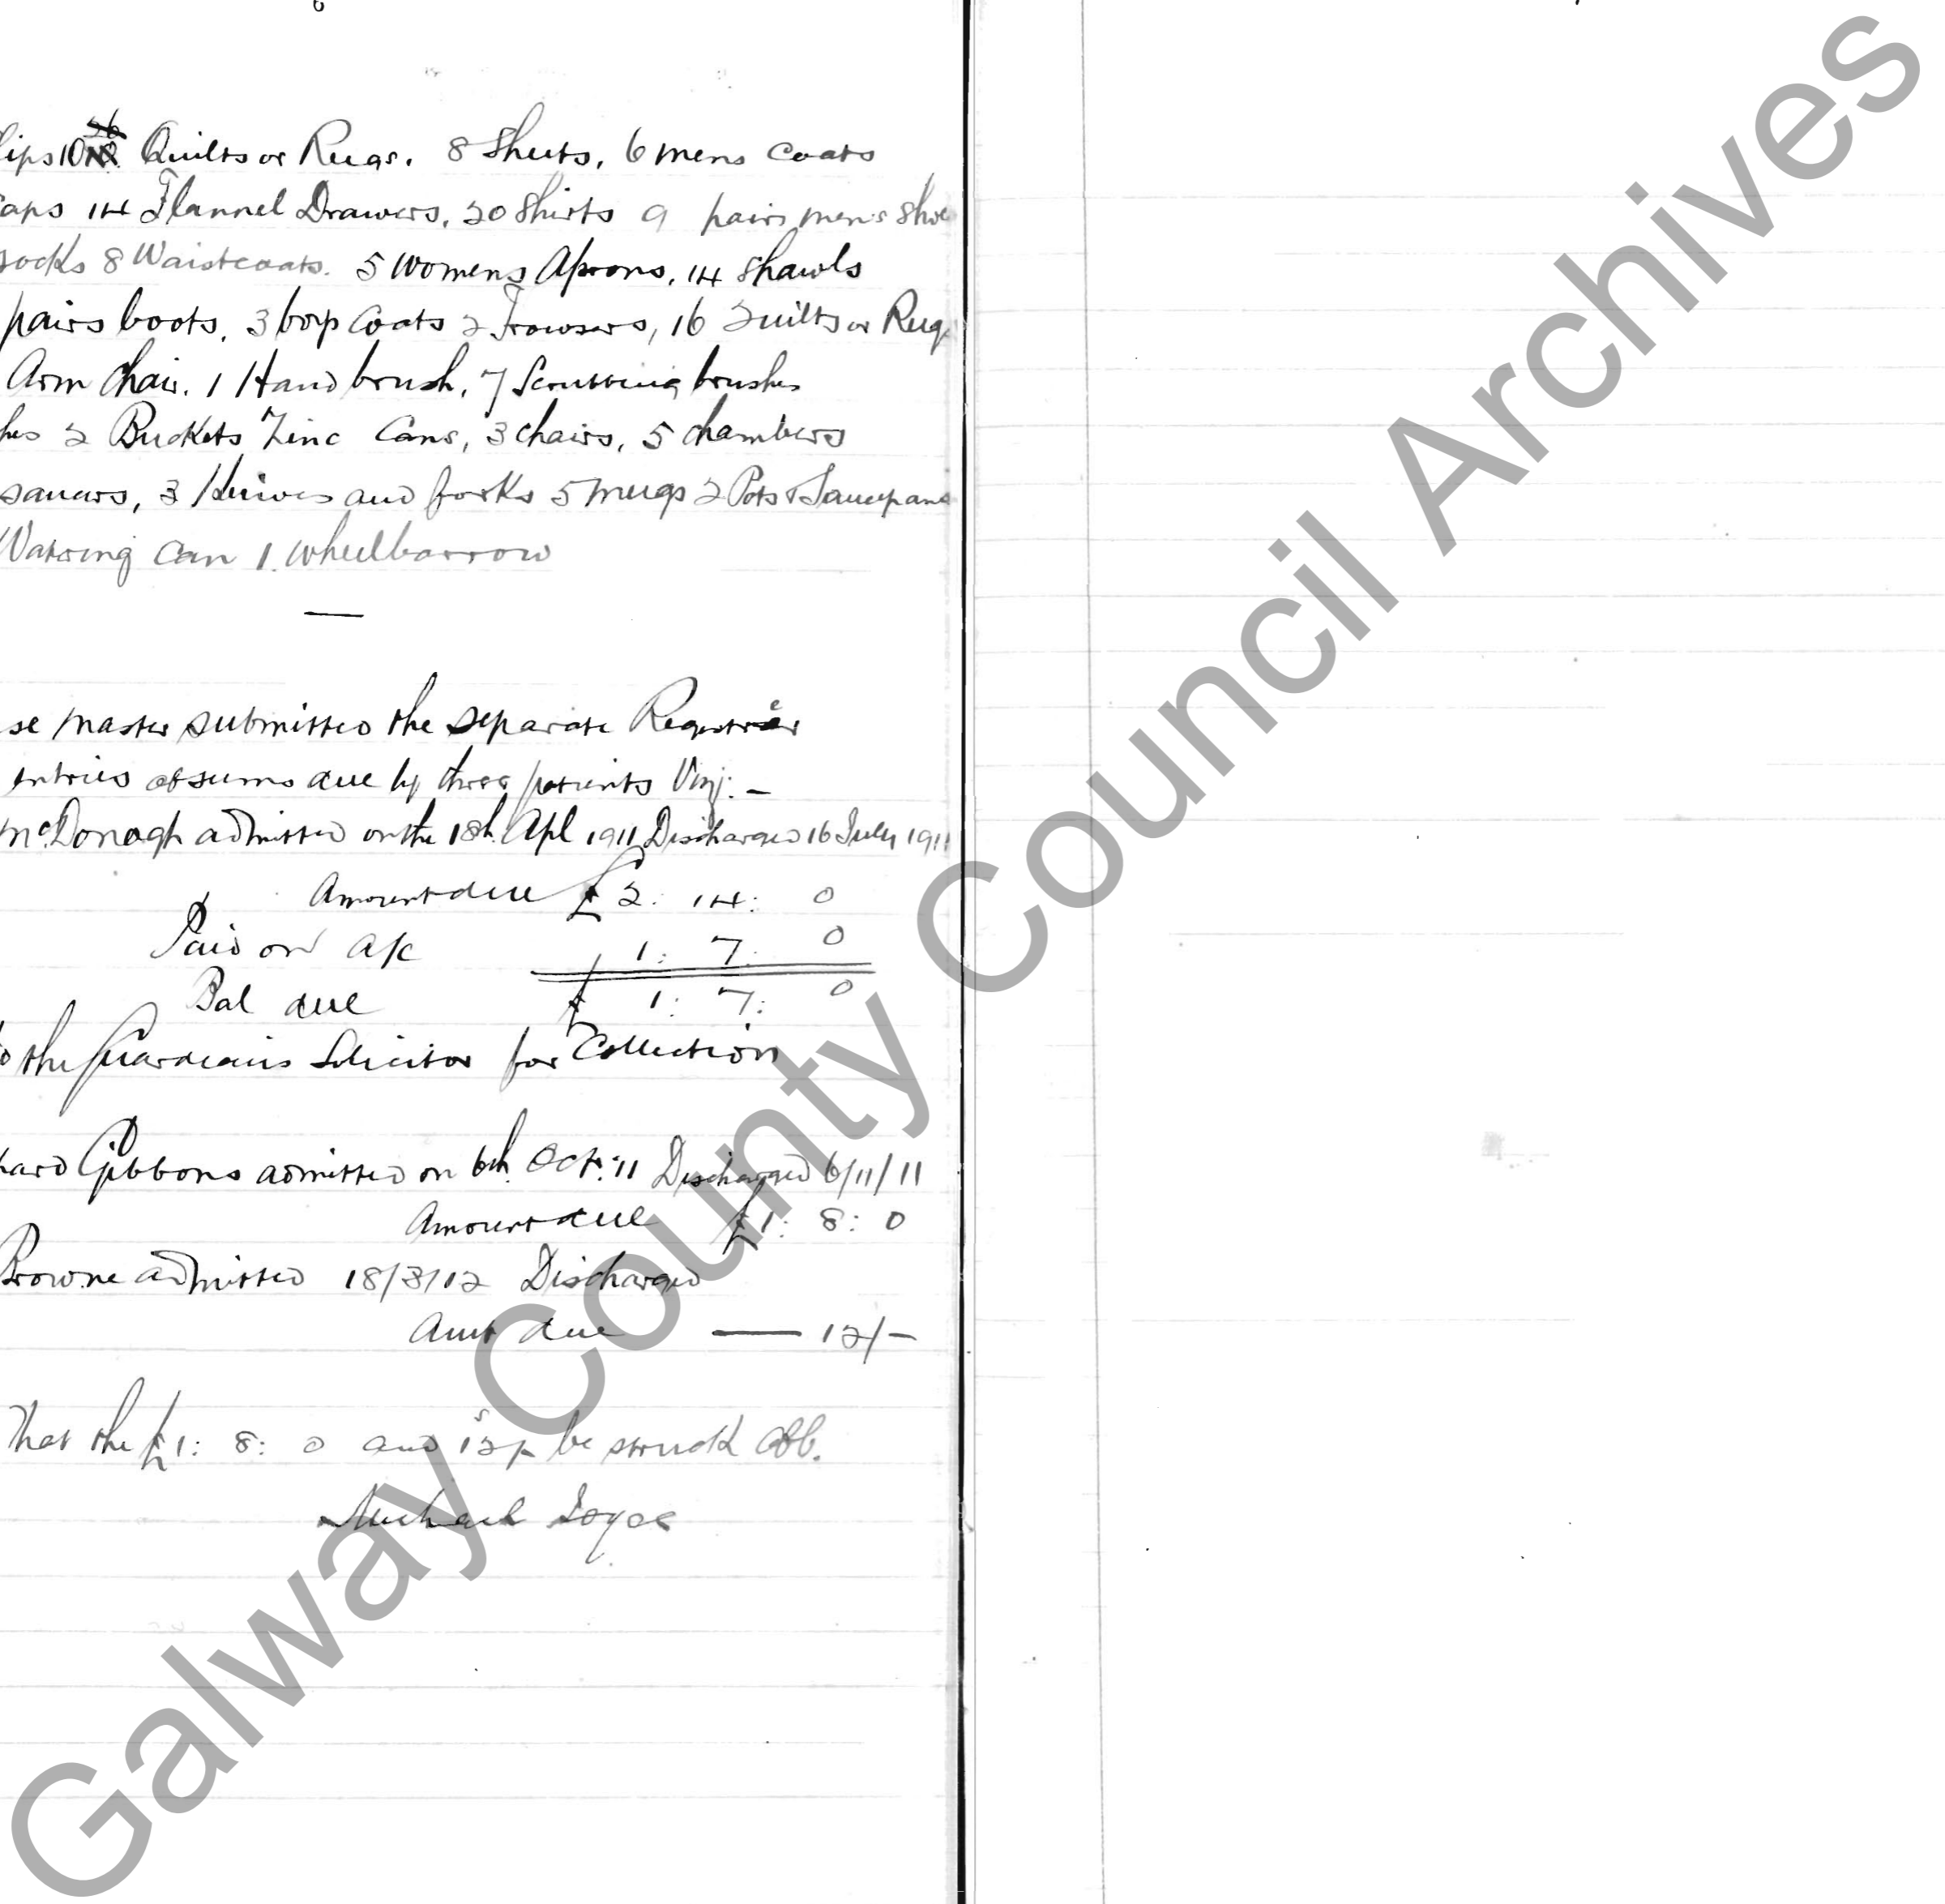 lips 10 Quilts or Rugs. 8 Sheets, 6 mens Coats
caps 14 Flannel Drawers, 20 Shirts 9 pairs men's Shoe
socks 8 Waistcoats. 5 Womens Aprons, 14 Shawls
pairs boots, 3 boys Coats 2 Trowsers, 16 Quilts or Rug
Arm Chair. 1 Hand brush, 7 Scrubbing brushes
hes 2 Buckets Zinc Cans, 3 chairs, 5 chambers
saucers, 3 Knives and forks 5 mugs 2 Pots & Saucepans
Watering Can 1. wheelbarrow
se Master submitted the separate Register
entries of sums due by three patients Viz: -
McDonagh admitted on the 18th. Apl 1911 Discharged 16 July 1911
Amount due £2: 14: 0
Paid on a/c 1: 7: 0
Bal due £1: 7: 0
the Guardians Solicitor for Collection
hard Gibbons admitted on 6th. Oct: 11 Discharged 6/11/11
Amount due £1: 8: 0
Browne admitted 18/3/12 Discharged
Amt due — 12/-
That the £1: 8: 0 and 12s/- be struck off.
Michael Joyce
Galway County Council Archives